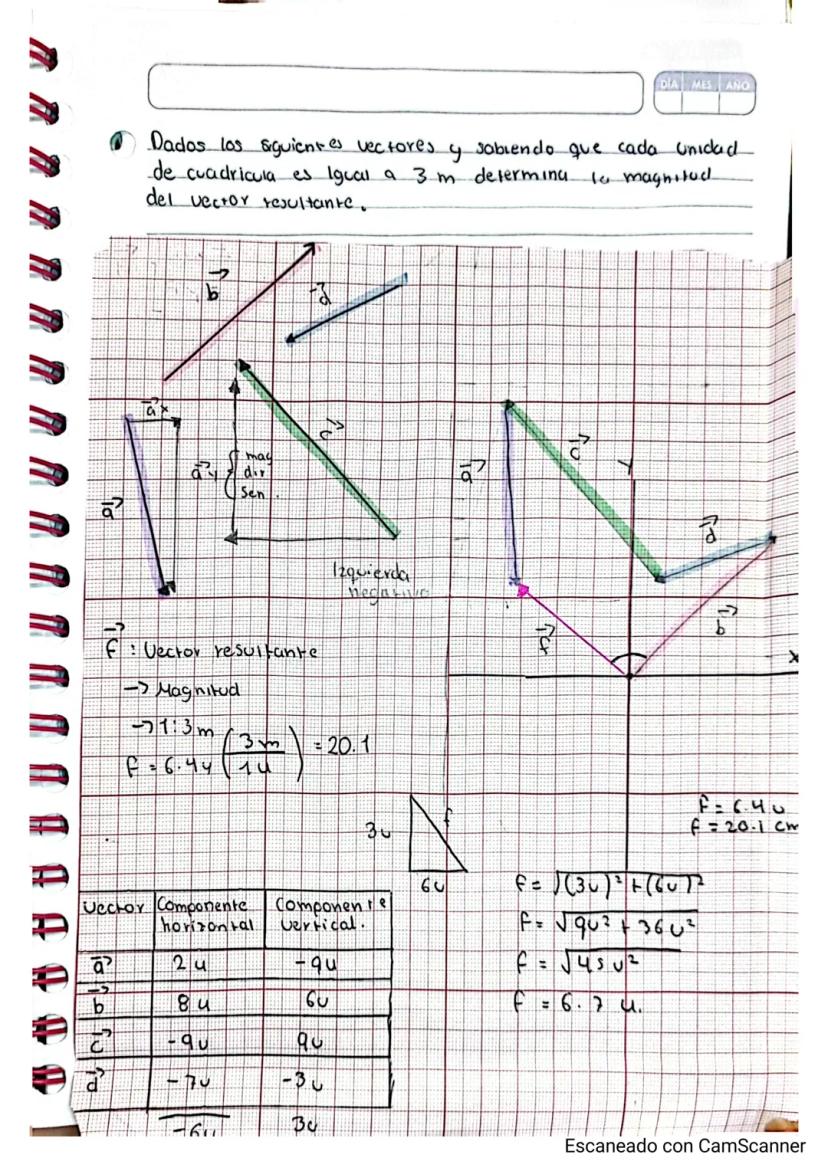 DÍA MES AÑO
Dados los siguientes vectores y sabiendo que cada unidad
de cuadricula es Igual a 3 m determina la magnitud
del vector resultante.
b
d
a x
c
a y
mag
dir
sen.
a
Izquierda
negativo
a
c
Y
d
b
f
x
f : Vector resultante
-> Magnitud
-> 1:3m
f = 6.4u (3m / 1u) = 20.1
f = 6.4u
f = 20.1 cm
3u
f
6u
f = √(3u)² + (6u)²
f = √9u² + 36u²
f = √45u²
f = 6.7 u.
Vector Componente horizontal Componente vertical.
a 2u -9u
b 8u 6u
c -9u 9u
d -7u -3u
-6u 3u
Escaneado con CamScanner